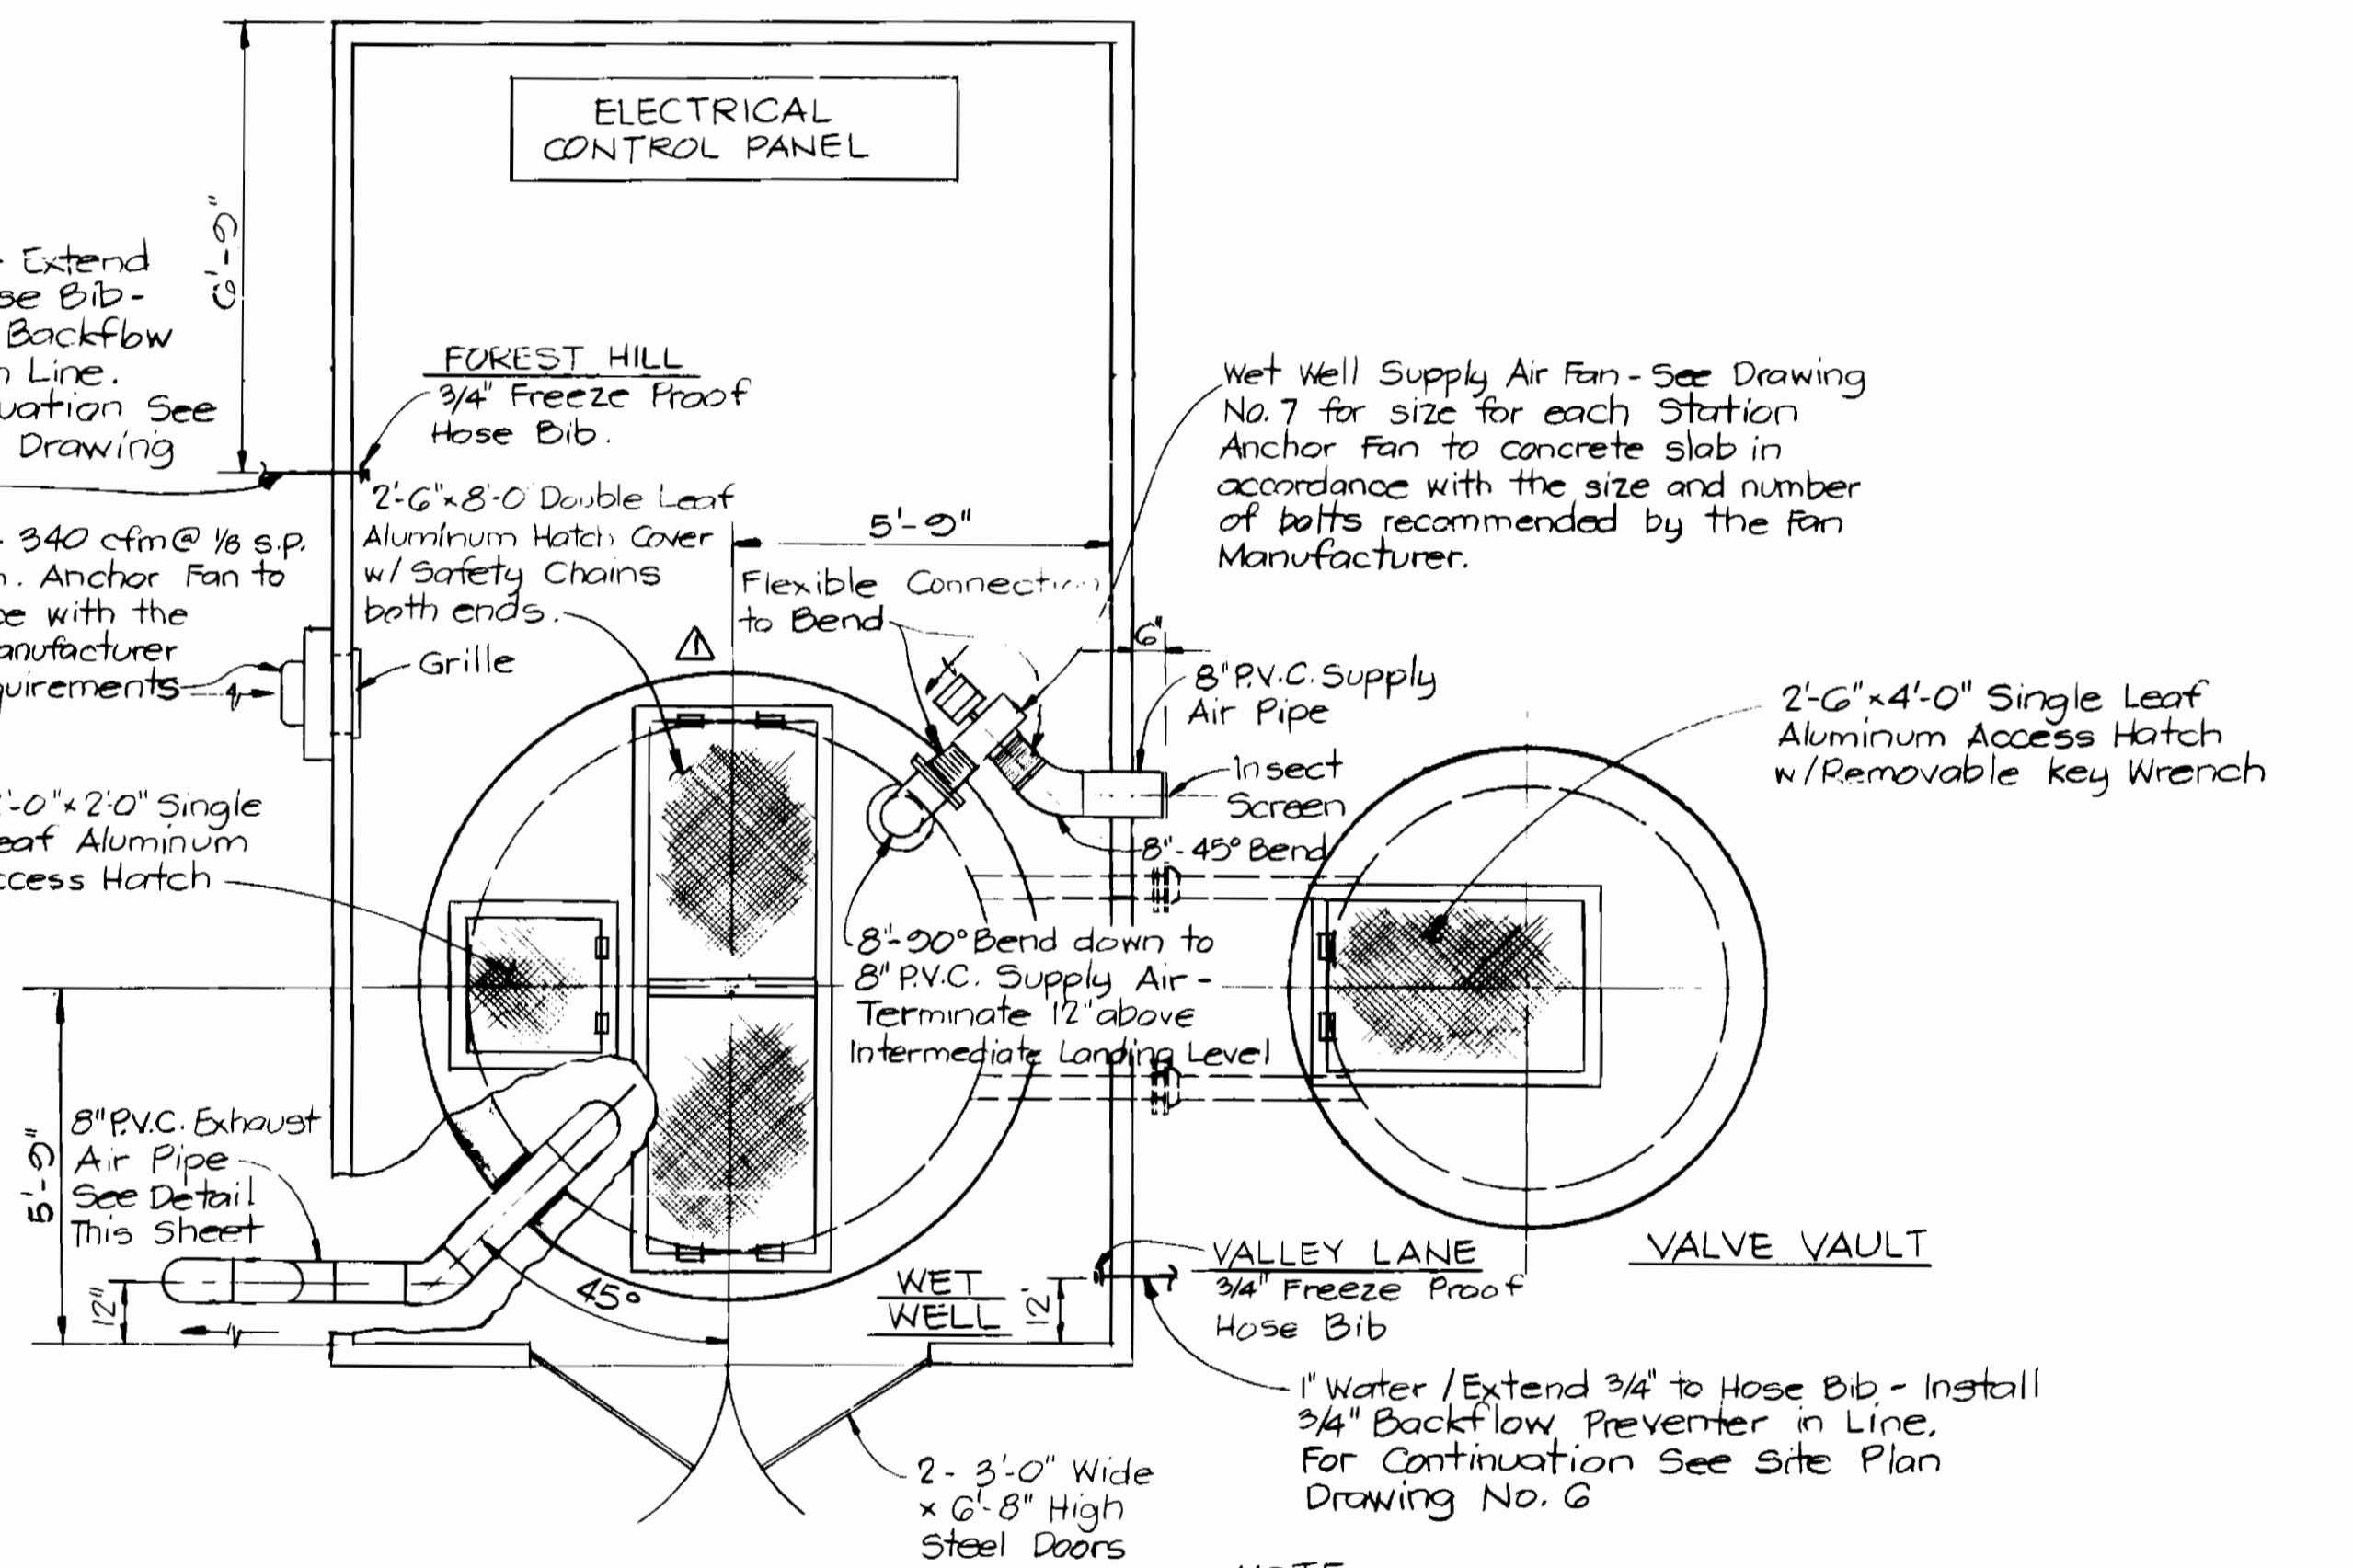 ELECTRICAL
CONTROL PANEL
6'-9"
Extend
se Bib-
Backflow
n Line.
uation See
Drawing
FOREST HILL
3/4" Freeze Proof
Hose Bib.
340 cfm@ 1/8 s.p.
n. Anchor Fan to
ce with the
anufacturer
quirements
2'-6"x8'-0 Double Leaf
Aluminum Hatch Cover
w/ Safety Chains
both ends.
Grille
5'-9"
Flexible Connection
to Bend
1
Wet Well Supply Air Fan - See Drawing
No. 7 for size for each Station
Anchor Fan to concrete slab in
accordance with the size and number
of bolts recommended by the Fan
Manufacturer.
6"
8" P.V.C. Supply
Air Pipe
Insect
Screen
8"-45° Bend
2'-6"x4'-0" Single Leaf
Aluminum Access Hatch
w/Removable Key Wrench
'-0"x2'0" Single
eaf Aluminum
ccess Hatch
8"-90° Bend down to
8" P.V.C. Supply Air -
Terminate 12" above
Intermediate Landing Level
5'-9"
8" P.V.C. Exhaust
Air Pipe
See Detail
This Sheet
12"
45°
WET
WELL
12"
VALLEY LANE
3/4" Freeze Proof
Hose Bib
VALVE VAULT
1" Water / Extend 3/4" to Hose Bib - Install
3/4" Backflow Preventer in Line.
For Continuation See Site Plan
Drawing No. 6
2 - 3'-0" Wide
x 6'-8" High
Steel Doors